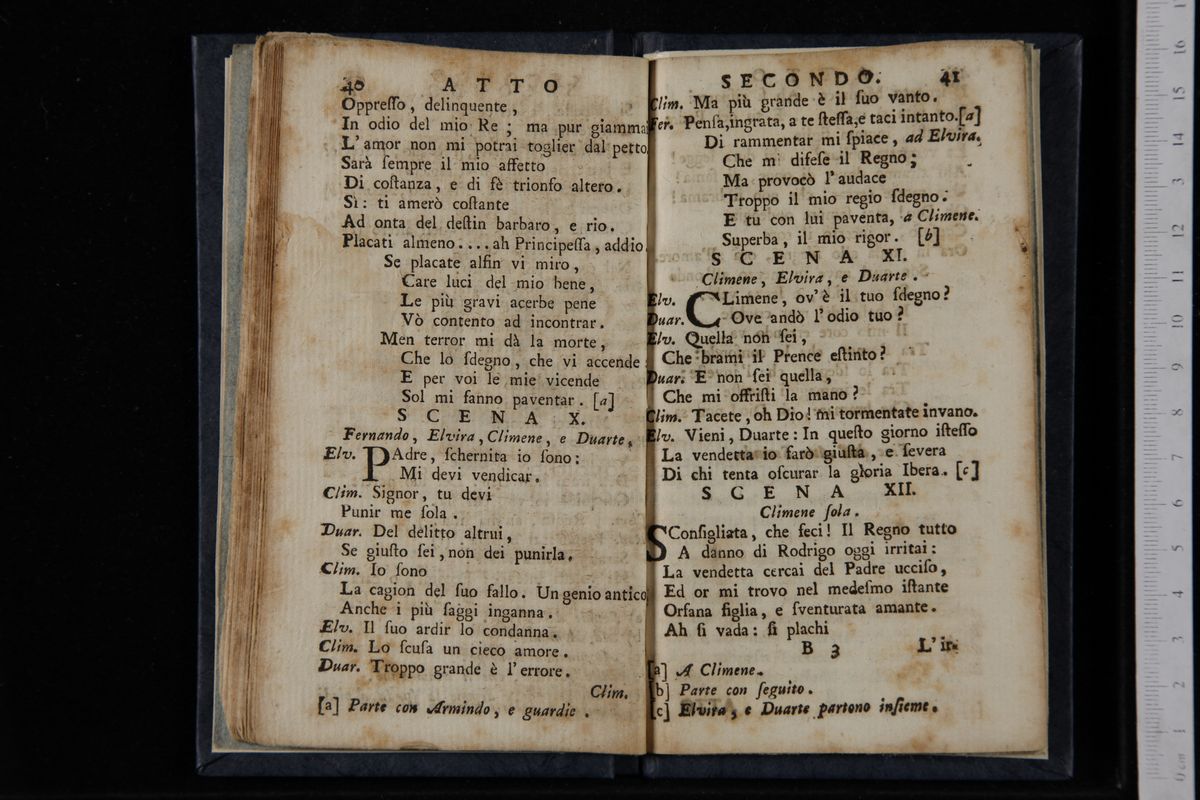 40 ATTO
Oppreſſo, delinquente,
In odio del mio Re; ma pur giammai
L'amor non mi potrai toglier dal petto
Sarà ſempre il mio affetto
Di coſtanza, e di fè trionfo altero.
Sì: ti amerò coſtante
Ad onta del deſtin barbaro, e rio.
Placati almeno.... ah Principeſſa, addio.
Se placate alfin vi miro,
Care luci del mio bene,
Le più gravi acerbe pene
Vò contento ad incontrar.
Men terror mi dà la morte,
Che lo ſdegno, che vi accende:
E per voi le mie vicende
Sol mi fanno paventar. [a]
SCENA X.
Fernando, Elvira, Climene, e Duarte,
Elv. PAdre, ſchernita io ſono:
Mi devi vendicar.
Clim. Signor, tu devi
Punir me ſola.
Duar. Del delitto altrui,
Se giuſto ſei, non dei punirla.
Clim. Io ſono
La cagion del ſuo fallo. Un genio antico
Anche i più ſaggi inganna.
Elv. Il ſuo ardir lo condanna.
Clim. Lo ſcuſa un cieco amore.
Duar. Troppo grande è l'errore.
Clim.
[a] Parte con Armindo, e guardie.
SECONDO. 41
Clim. Ma più grande è il ſuo vanto.
Fer. Penſa, ingrata, a te ſteſſa, e taci intanto. [a]
Di rammentar mi ſpiace, ad Elvira.
Che mi difeſe il Regno;
Ma provocò l'audace
Troppo il mio regio ſdegno.
E tu con lui paventa, a Climene.
Superba, il mio rigor. [b]
SCENA XI.
Climene, Elvira, e Duarte.
Elv. CLimene, ov'è il tuo ſdegno?
Duar. Ove andò l'odio tuo?
Elv. Quella non ſei,
Che brami il Prence eſtinto?
Duar. E non ſei quella,
Che mi offriſti la mano?
Clim. Tacete, oh Dio! mi tormentate invano.
Elv. Vieni, Duarte: In queſto giorno iſteſſo
La vendetta io farò giuſta, e ſevera
Di chi tenta oſcurar la gloria Ibera. [c]
SCENA XII.
Climene ſola.
SConſigliata, che feci! Il Regno tutto
A danno di Rodrigo oggi irritai:
La vendetta cercai del Padre ucciſo,
Ed or mi trovo nel medeſmo iſtante
Orfana figlia, e ſventurata amante.
Ah ſi vada: ſi plachi
B 3 L'ir-
[a] A Climene.
[b] Parte con ſeguito.
[c] Elvira, e Duarte partono inſieme.